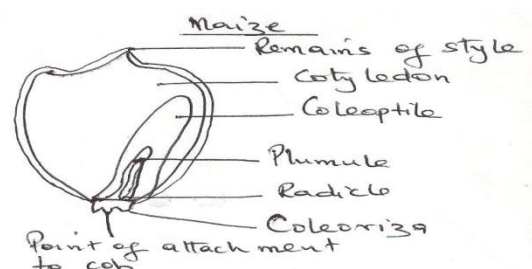 Maize
Remains of style
Cotyledon
Coleoptile
Plumule
Radicle
Coleoriza
Point of attachment
to cob